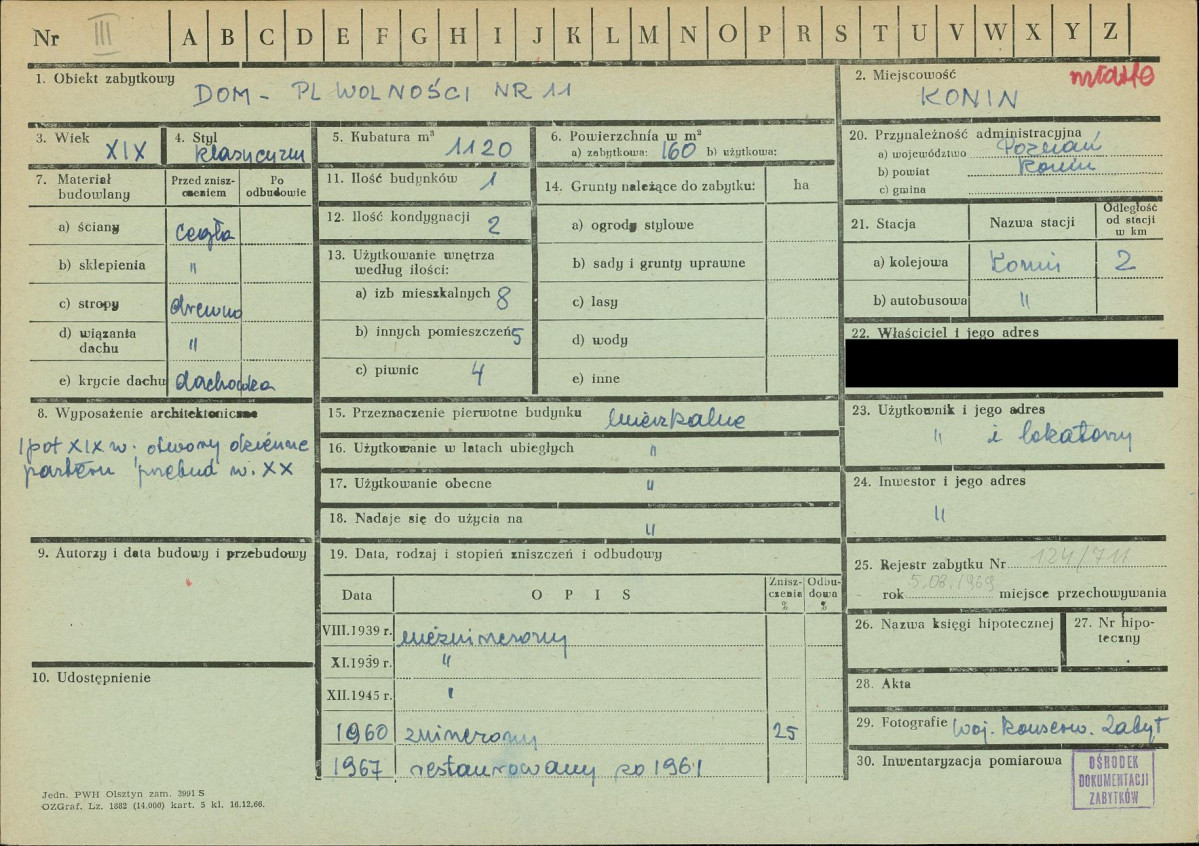 Nr III A B C D E F G H I J K L M N O P R S T U V W X Y Z
1. Obiekt zabytkowy
DOM - PL WOLNOŚCI NR 11
2. Miejscowość
miasto
KONIN
3. Wiek
XIX
4. Styl
klasycyzm
5. Kubatura m³
1120
6. Powierzchnia w m²
a) zabytkowa: 160 b) użytkowa:
7. Materiał budowlany
Przed zniszczeniem
Po odbudowie
a) ściany cegła
b) sklepienia "
c) stropy drewno
d) wiązania dachu "
e) krycie dachu dachówka
8. Wyposażenie architektoniczne
1 poł XIX w. otwory okienne
parteru przebud w. XX
9. Autorzy i data budowy i przebudowy
10. Udostępnienie
11. Ilość budynków 1
12. Ilość kondygnacji 2
13. Użytkowanie wnętrza
według ilości:
a) izb mieszkalnych 8
b) innych pomieszczeń 5
c) piwnic 4
14. Grunty należące do zabytku: ha
a) ogrody stylowe
b) sady i grunty uprawne
c) lasy
d) wody
e) inne
15. Przeznaczenie pierwotne budynku mieszkalne
16. Użytkowanie w latach ubiegłych "
17. Użytkowanie obecne "
18. Nadaje się do użycia na "
19. Data, rodzaj i stopień zniszczeń i odbudowy
Data OPIS Zniszczenia % Odbudowa %
VIII.1939 r. niezniszczony
XI.1939 r. "
XII.1945 r. "
1960 zniszczony 25
1967 restaurowany po 1961
20. Przynależność administracyjna
a) województwo Poznań
b) powiat Konin
c) gmina
21. Stacja Nazwa stacji Odległość od stacji w km
a) kolejowa Konin 2
b) autobusowa "
22. Właściciel i jego adres
23. Użytkownik i jego adres
" i lokatorzy
24. Inwestor i jego adres
"
25. Rejestr zabytku Nr 124/711
rok 5.08.1969 miejsce przechowywania
26. Nazwa księgi hipotecznej
27. Nr hipoteczny
28. Akta
29. Fotografie Woj. Konserw. Zabyt
30. Inwentaryzacja pomiarowa
OŚRODEK
DOKUMENTACJI
ZABYTKÓW
Jedn. PWH Olsztyn zam. 3991 S
OZGraf. Lz. 1882 (14.000) kart. 5 kl. 16.12.66.